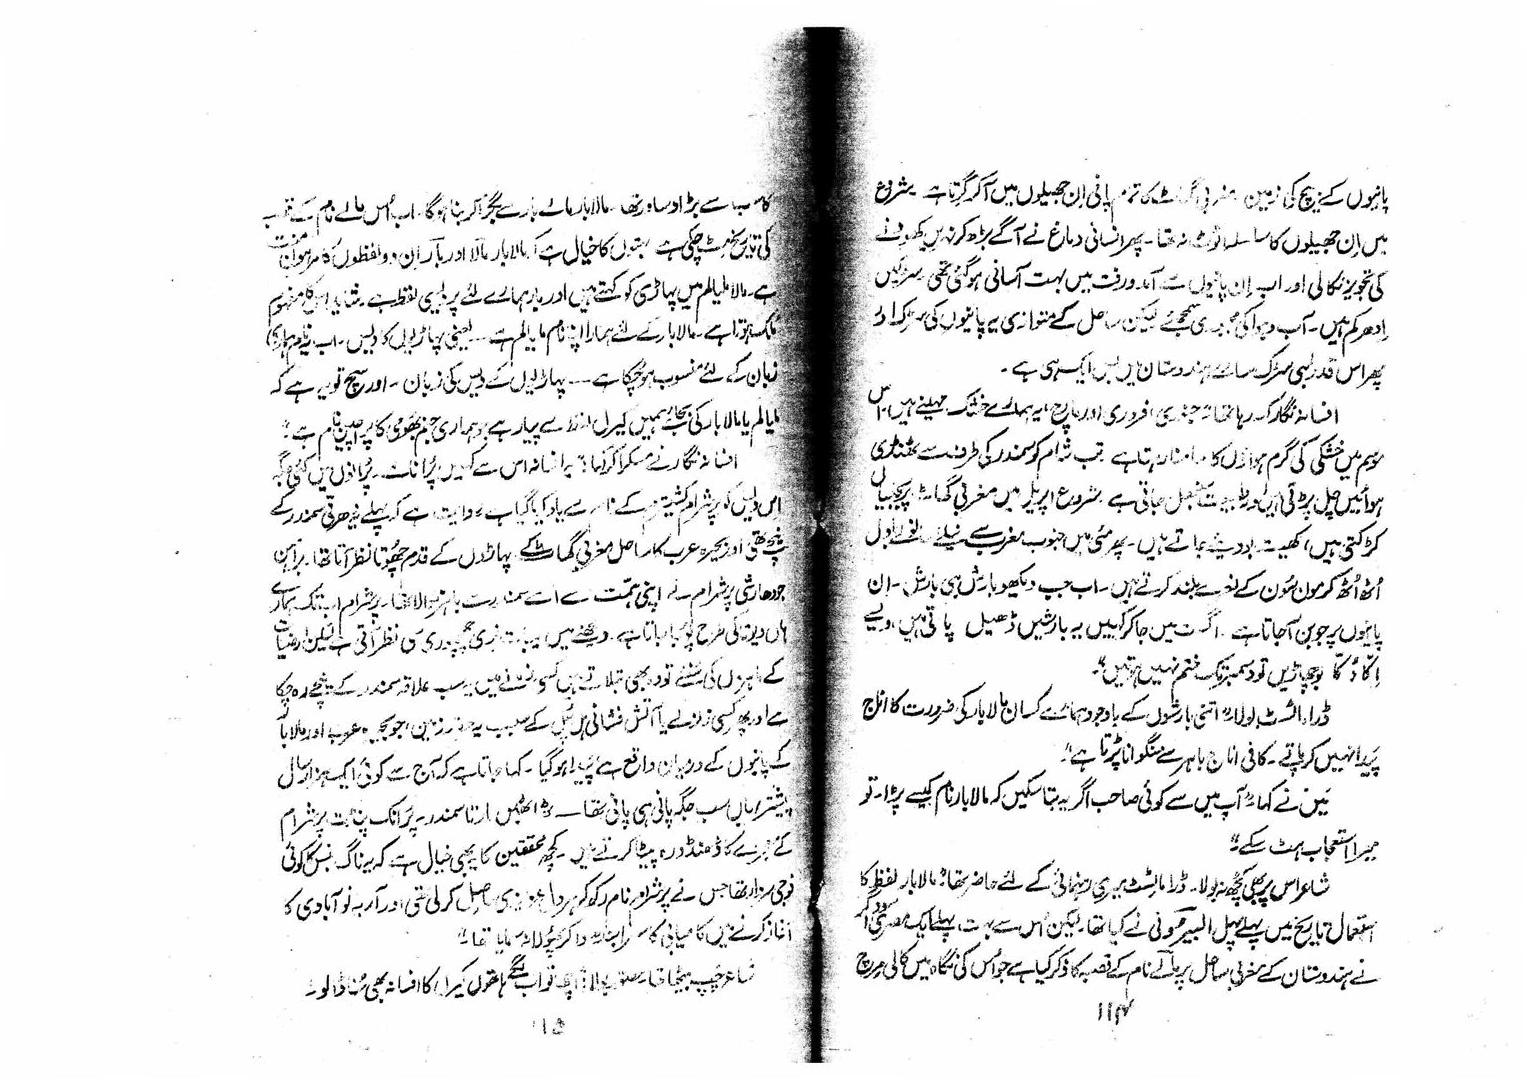 پانیوں کے بیچ کی زمین مغربی گھاٹ کا تمام پانی اِن جھیلوں میں آکر گرتا ہے شروع
میں اِن جھیلوں کا سلسلہ نہ تھا۔ پھر انسانی دماغ نے آگے بڑھ کر نہریں کھودنے
کی تجویز نکالی اور اب اِن پانیوں سے آمدورفت میں بہت آسانی ہوگئی تھی سڑکیں
اِدھر کم ہیں۔ آب وہوا کی سمجھئے لیکن ساحل کے متوازی یہ پانیوں کی سڑک اور
پھر اس قدر لمبی سڑک سارے ہندوستان میں بس ایک ہی ہے۔
افسانہ نگار کہہ رہا تھا جنوری فروری اور مارچ یہ ہمارے خشک مہینے ہیں اِس
موسم میں خشکی کی گرم ہواؤں کا سامنا رہتا ہے تب شام کو سمندر کی طرف سے ٹھنڈی
ہوائیں چل پڑتی ہیں اور طبیعت سنبھل جاتی ہے شروع اپریل میں مغربی گھاٹ پر بجلیاں
کڑکتی ہیں، کھیت بو دیئے جاتے ہیں۔ پھر مئی میں جنوب مغرب سے نیلے بادل
اُٹھ اُٹھ کر مون سُون کے نعرے بلند کرتے ہیں۔ اب جب دیکھو بارش ہی بارش۔ اِن
پانیوں پر جوبن آجاتا ہے۔ اگست میں جاکر کہیں یہ بارشیں ڈھیل پاتی ہیں، ویسے
اِکاّ دُکاّ بوچھاڑیں تو دسمبر تک ختم نہیں ہوتیں"۔
ڈراماٹسٹ بولا" اتنی بارشوں کے باوجود ہمارے کسان مالابار کی ضرورت کا اناج
پَیدا نہیں کر پاتے۔ کافی اناج باہر سے منگوانا پڑتا ہے"۔
مَیں نے کہا" آپ میں سے کوئی صاحب اگر یہ بتا سکیں کہ مالابار نام کیسے پڑا۔ تو
میرا استعجاب ہٹ سکے"۔
شاعر اس پر بھی کچھ نہ بولا۔ ڈراماٹسٹ میری رہنمائی کے لئے حاضر تھا" مالابار لفظ کا
استعمال تاریخ میں پہلے پہل البیرونی نے کیا تھا۔ لیکن اُس سے بہت پہلے ایک مصری سوداگر
نے ہندوستان کے مغربی ساحل پر مالے نام کے قصبہ کا ذکر کیا ہے جو اُس کی نگاہ میں کالی مرچ
۱۱۴
کا سب سے بڑا دساور تھا۔ مالابار مالے بار سے بگڑ کر بنا ہوگا۔ اب اُس مالے نام کے قصبہ
کی تاریخ مِٹ چکی ہے بہتوں کا خیال ہے کہ مالابار مالا اور بار اِن دو لفظوں کا مرہون منت
ہے۔ مالا ملیالم میں پہاڑی کو کہتے ہیں اور بار ہمارے لئے پردیسی لفظ ہے۔ شاید اس کا مفہوم
ملک ہوتا ہے۔ مالابار کے لئے ہمارا اپنا نام ملیالم ہے ـــ یعنی پہاڑیوں کا دیس۔ اب یہ نام ہماری
زبان کے لئے منسوب ہوچکا ہے ـــ پہاڑیوں کے دیس کی زبان ۔ اور سچ تو یہ ہے کہ
ملیالم یا مالابار کی بجائے ہمیں کیرل لفظ سے پیار ہے جو ہماری جنم بھومی کا پراچین نام ہے"۔
افسانہ نگار نے مسکرا کر کہا" یہ افسانہ اس سے کہیں پُرانا ہے۔ پُرانوں میں کئی جگہ
اِس دیس کو پرشرام کشیتر کے نام سے یاد کیا گیا ہے روایت ہے کہ پہلے یہ دھرتی سمندر کے
نیچے تھی اور بحیرہ عرب کا ساحل مغربی گھاٹ کے پہاڑوں کے قدم چھُوتا نظر آتا تھا۔ براہمن
جودھا رشی پرشرام نے اپنی ہمت سے اسے سمندر سے باہر نکالا تھا۔ پرشرام اب تک ہمارے
ہاں دیوتا کی طرح پُوجا جاتا ہے۔ دیکھنے میں یہ بات بڑی بھونڈی سی نظر آتی ہے لیکن ارضیات
کے ماہروں کی سُنئے تو وہ بھی بتلاتے ہیں کسی زمانے میں یہ سب علاقہ سمندر کے نیچے رہ چکا
ہے اور پھر کسی زلزلے یا آتش فشانی ہل چل کے سبب یہ زمین، جو بحیرہ عرب اور مالابار
کے پانیوں کے درمیان واقع ہے پَیدا ہوگیا۔ کہا جاتا ہے کہ آج سے کوئی ایک ہزار سال
پیشتر یہاں سب جگہ پانی ہی پانی تھا ـــ بڑا سمندر۔ پُرانک پنڈت پرشرام
کے معجزے کا ڈھنڈورہ پیٹا کرتے ہیں۔ کچھ محققین کا یہ بھی خیال ہے کہ یہ ناگ بنس کا کوئی
فوجی سردار تھا جس نے پرشرام نام رکھ کر ہر دلعزیزی حاصل کرلی تھی اور آریہ نو آبادی کا
آغاز کرنے میں کامیابی کا سہرا پھُولا نہ سمایا تھا"۔
شاعر چُپ بیٹھا تھا۔ بولا" اچھا تو اب لگے ہاتھوں کیرل کا افسانہ بھی سُنا ڈالو۔
۱۱۵